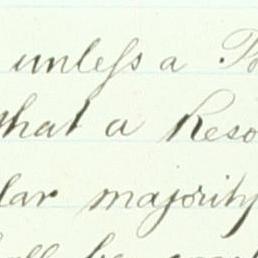 unless a
that a Reso
lar majority